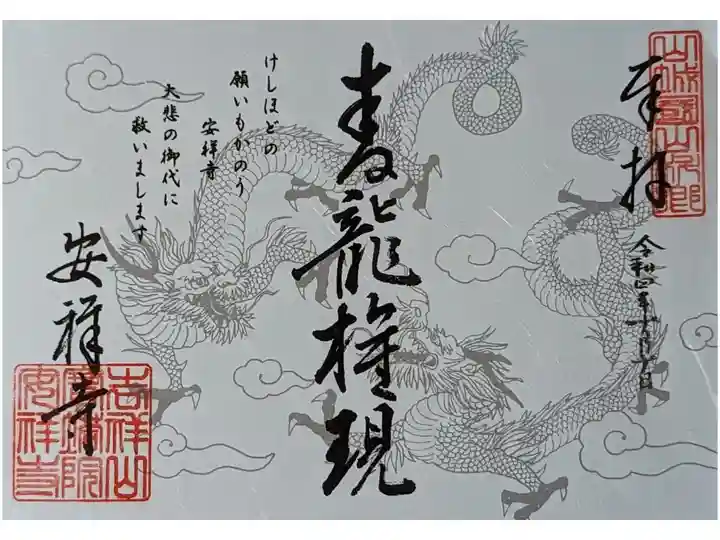 山城國山科郷
奉拝
令和四年十月
青龍権現
けしほどの
願いもかのう
安祥寺
大悲の御代に
救いまします
安祥寺
吉祥山
寳塔院
安祥寺